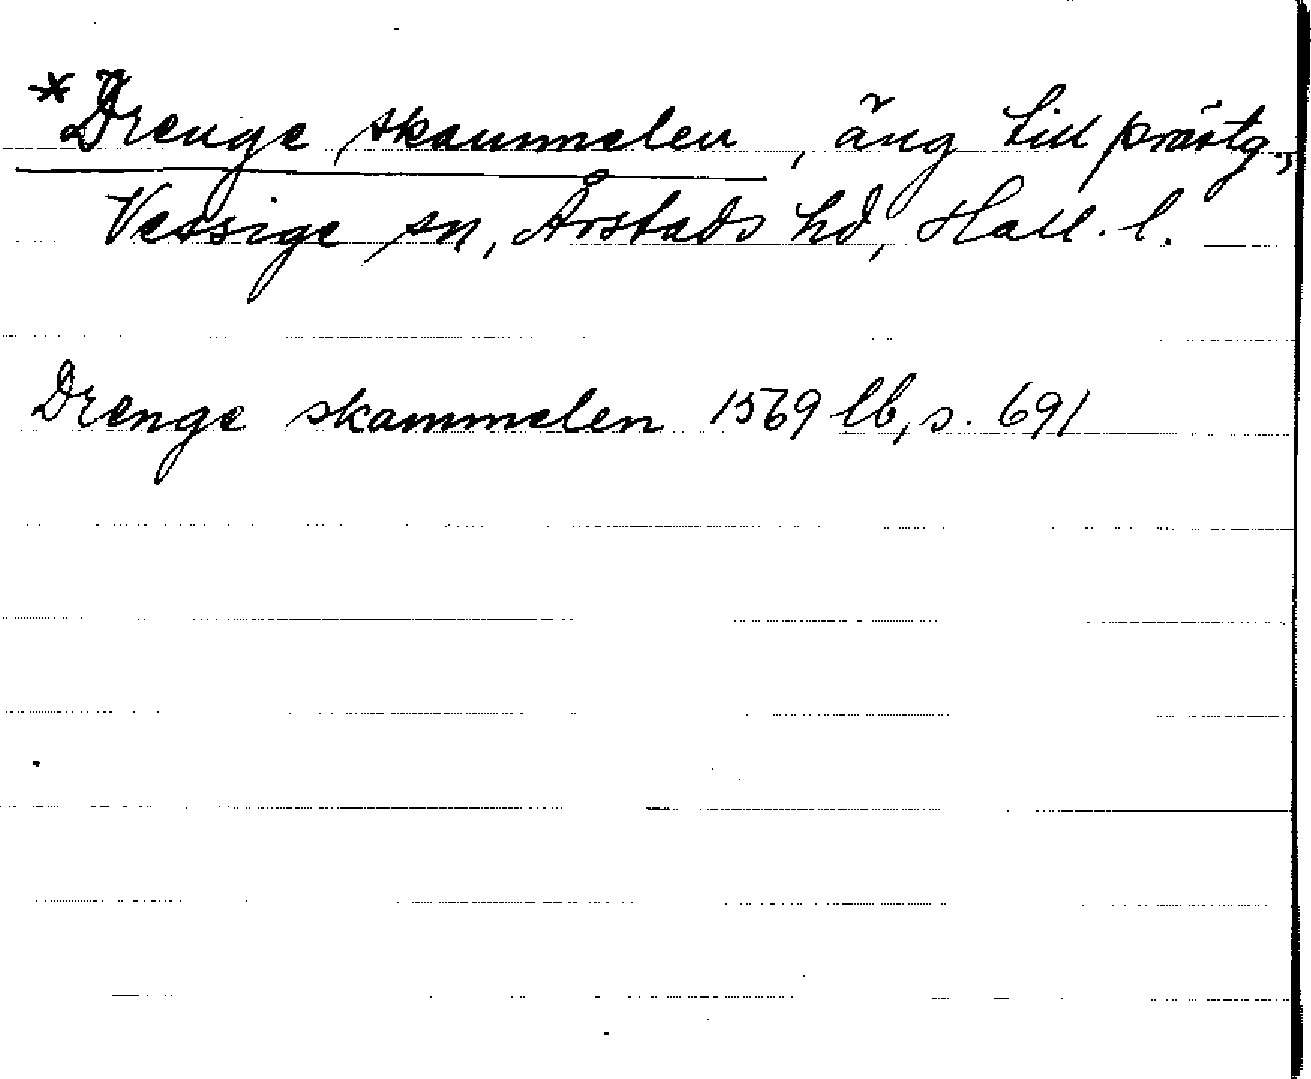 *Drenge skammelen, äng till prästg,
Vessige sn, Årstads hd, Hall. l.
Drenge skammelen 1569 lb, s. 691